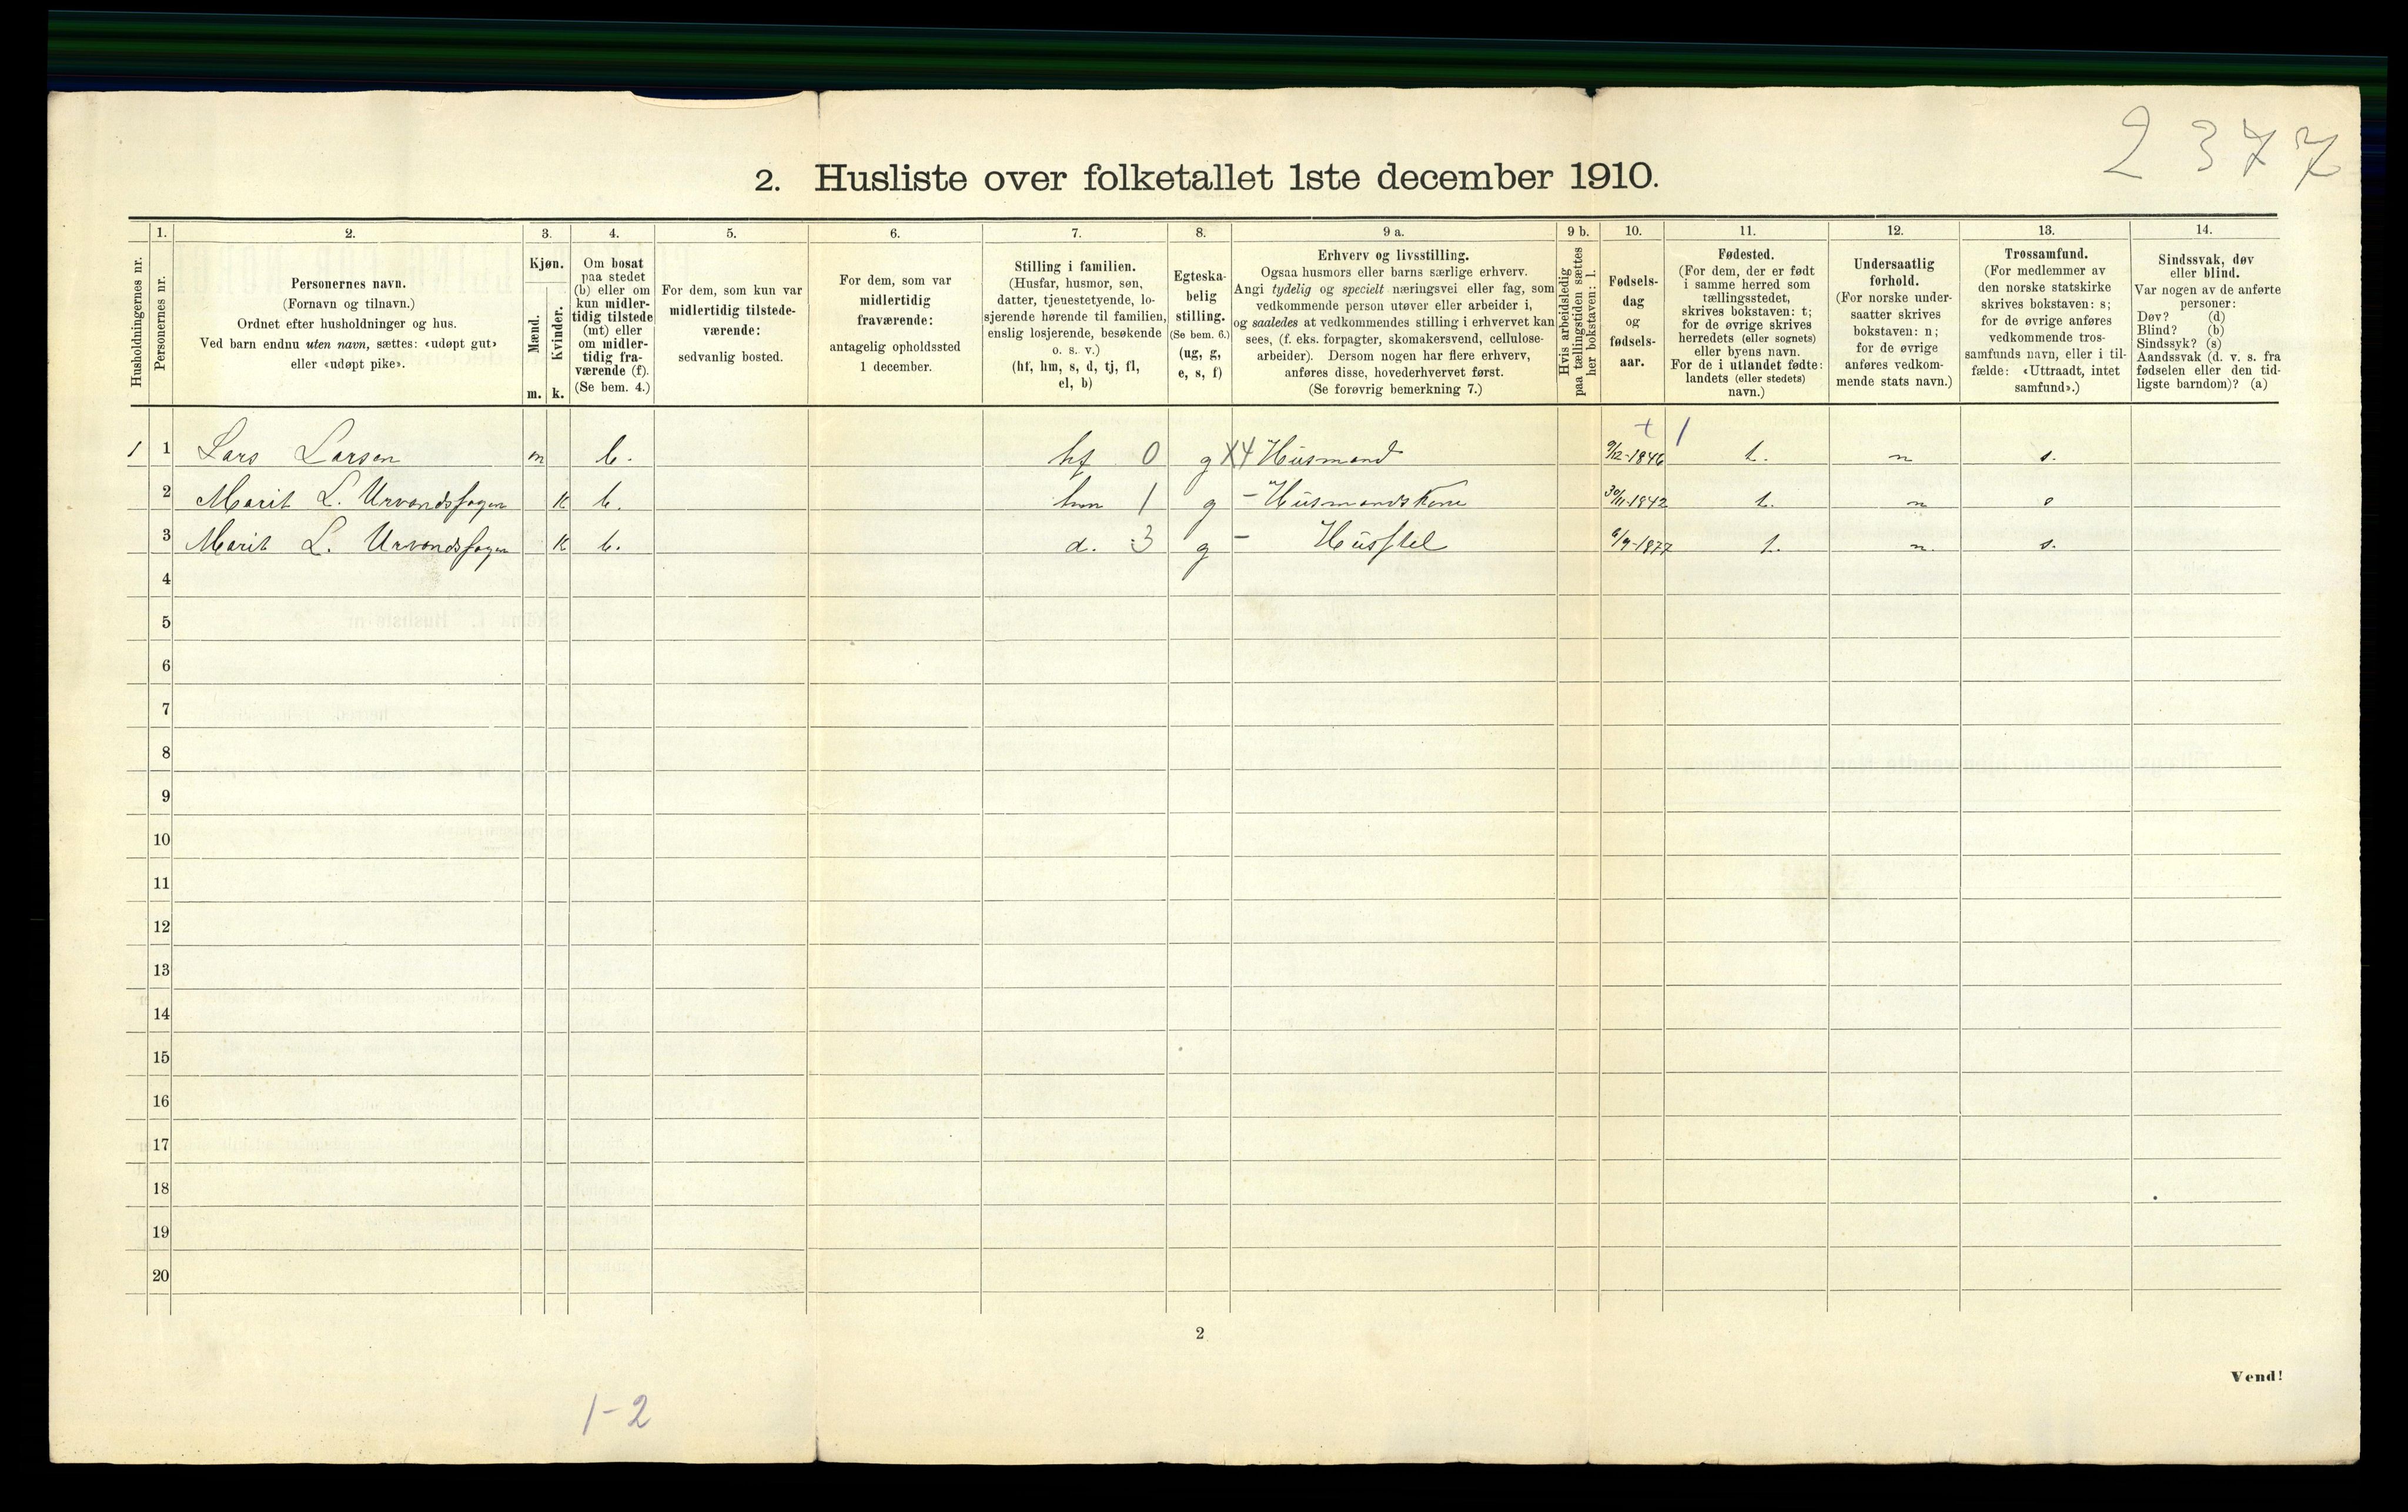 2377
2. Husliste over folketallet 1ste december 1910.
Husholdningernes nr.
1.
Personernes nr.
2.
Personernes navn.
(Fornavn og tilnavn.)
Ordnet efter husholdninger og hus.
Ved barn endnu uten navn, sættes: «udøpt gut»
eller «udøpt pike».
3.
Kjøn.
Mænd.
Kvinder.
m. k.
4.
Om bosat
paa stedet
(b) eller om
kun midler-
tidig tilstede
(mt) eller
om midler-
tidig fra-
værende (f).
(Se bem. 4.)
5.
For dem, som kun var
midlertidig tilstede-
værende:
sedvanlig bosted.
6.
For dem, som var
midlertidig
fraværende:
antagelig opholdssted
1 december.
7.
Stilling i familien.
(Husfar, husmor, søn,
datter, tjenestetyende, lo-
sjerende hørende til familien,
enslig losjerende, besøkende
o. s. v.)
(hf, hm, s, d, tj, fl,
el, b)
8.
Egteska-
belig
stilling.
(Se bem. 6.)
(ug, g,
e, s, f)
9 a.
Erhverv og livsstilling.
Ogsaa husmors eller barns særlige erhverv.
Angi tydelig og specielt næringsvei eller fag, som
vedkommende person utøver eller arbeider i,
og saaledes at vedkommendes stilling i erhvervet kan
sees, (f. eks. forpagter, skomakersvend, cellulose-
arbeider). Dersom nogen har flere erhverv,
anføres disse, hovederhvervet først.
(Se forøvrig bemerkning 7.)
9 b.
Hvis arbeidsledig
paa tællingstiden sættes
her bokstaven: l.
10.
Fødsels-
dag
og
fødsels-
aar.
11.
Fødested.
(For dem, der er født
i samme herred som
tællingsstedet,
skrives bokstaven: t;
for de øvrige skrives
herredets (eller sognets)
eller byens navn.
For de i utlandet fødte:
landets (eller stedets)
navn.)
12.
Undersaatlig
forhold.
(For norske under-
saatter skrives
bokstaven: n;
for de øvrige
anføres vedkom-
mende stats navn.)
13.
Trossamfund.
(For medlemmer av
den norske statskirke
skrives bokstaven: s;
for de øvrige anføres
vedkommende tros-
samfunds navn, eller i til-
fælde: «Uttraadt, intet
samfund».)
14.
Sindssvak, døv
eller blind.
Var nogen av de anførte
personer:
Døv? (d)
Blind? (b)
Sindssyk? (s)
Aandssvak (d. v. s. fra
fødselen eller den tid-
ligste barndom)? (a)
1 1 Lars Larsen m b. hf 0 g X4 Husmand 9/12-1846 t. n s.
2 Marit L. Urvandshagen k b. hm 1 g - Husmandskone 30/11-1842 t. n s
3 Marit L. Urvandshagen k b. d. 3 g - Husstel 6/9-1877 t. n. s.
4
5
6
7
8
9
10
11
12
13
14
15
16
17
18
19
20
2
Vend!
1-2